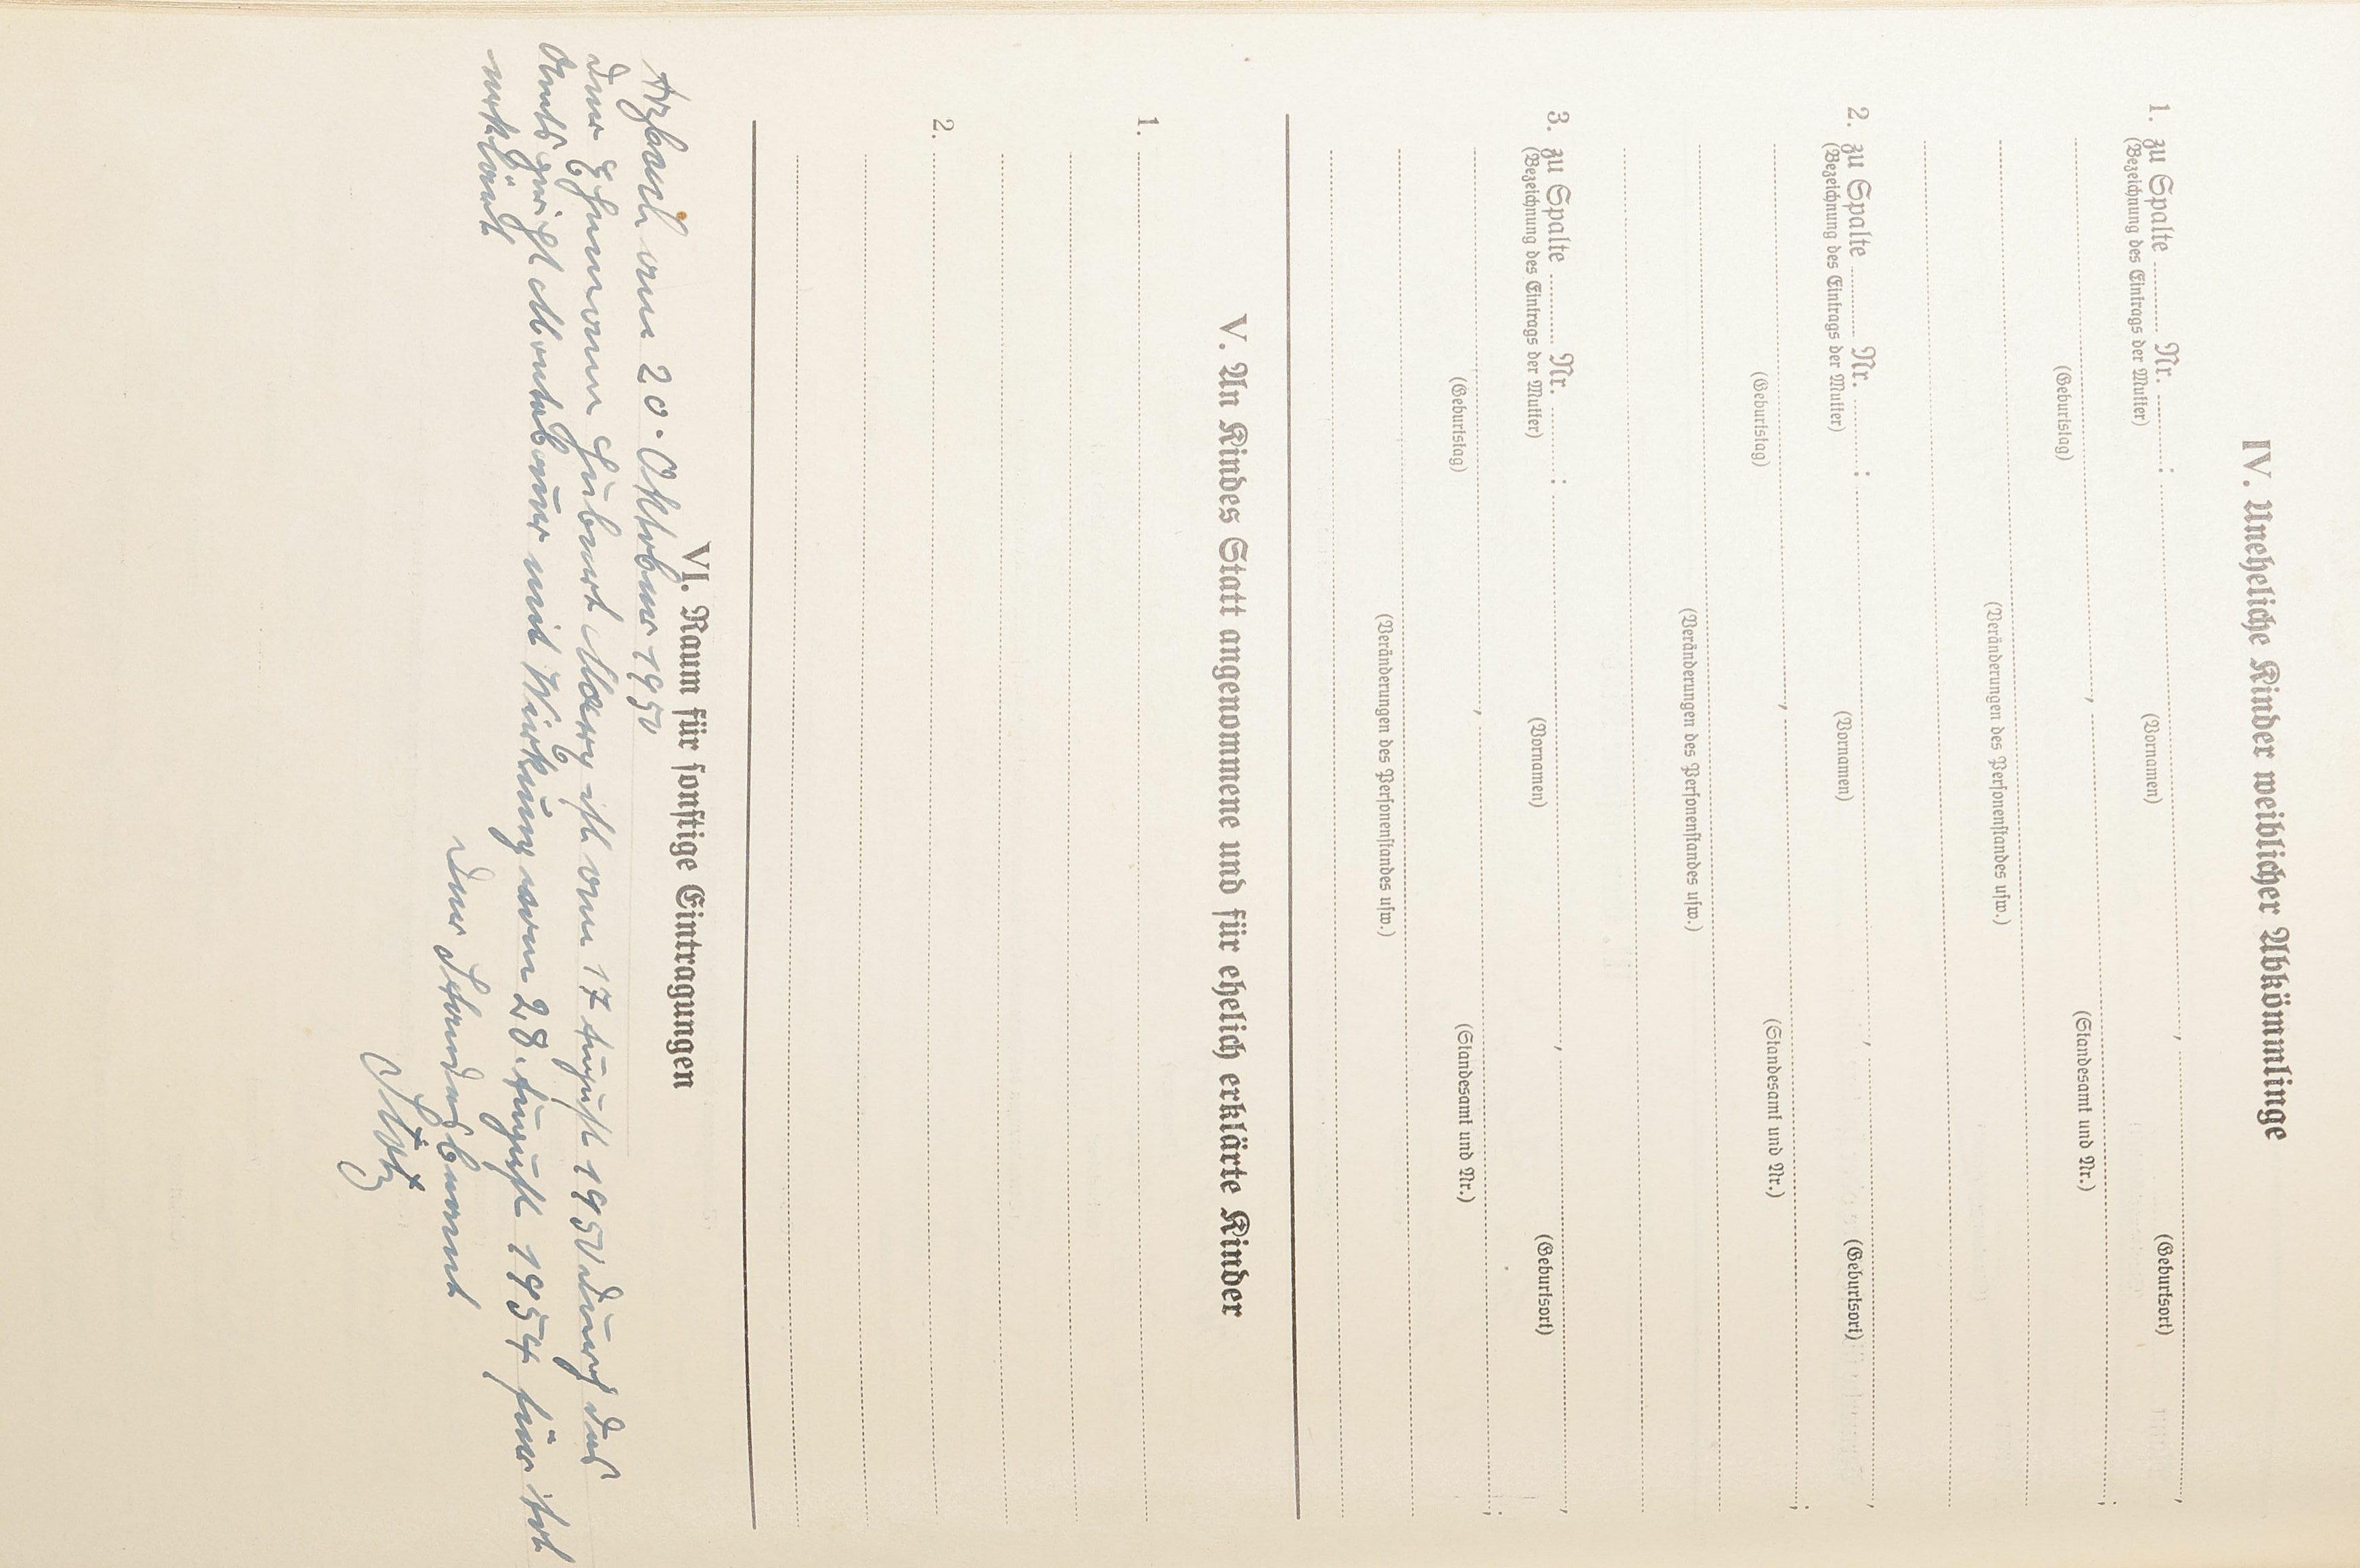 IV. Uneheliche Kinder weiblicher Abkömmlinge
1. zu Spalte ............ Nr. ............: ............, ............,
(Bezeichnung des Eintrags der Mutter) (Vornamen) (Geburtsort)
............, ............;
(Geburtstag) (Standesamt und Nr.)
(Veränderungen des Personenstandes usw.)
2. zu Spalte ............ Nr. ............: ............, ............,
(Bezeichnung des Eintrags der Mutter) (Vornamen) (Geburtsort)
............, ............;
(Geburtstag) (Standesamt und Nr.)
(Veränderungen des Personenstandes usw.)
3. zu Spalte ............ Nr. ............: ............, ............,
(Bezeichnung des Eintrags der Mutter) (Vornamen) (Geburtsort)
............, ............;
(Geburtstag) (Standesamt und Nr.)
(Veränderungen des Personenstandes usw.)
V. An Kindes Statt angenommene und für ehelich erklärte Kinder
1.
2.
VI. Raum für sonstige Eintragungen
Arzbach am 20. Oktober 1950
Der Ehemann Hubert ist am 17 August 1950 durch das
Amtsgericht Montabaur mit Wirkung vom 28. August 1954 für tot
erklärt
Der Standesbeamte